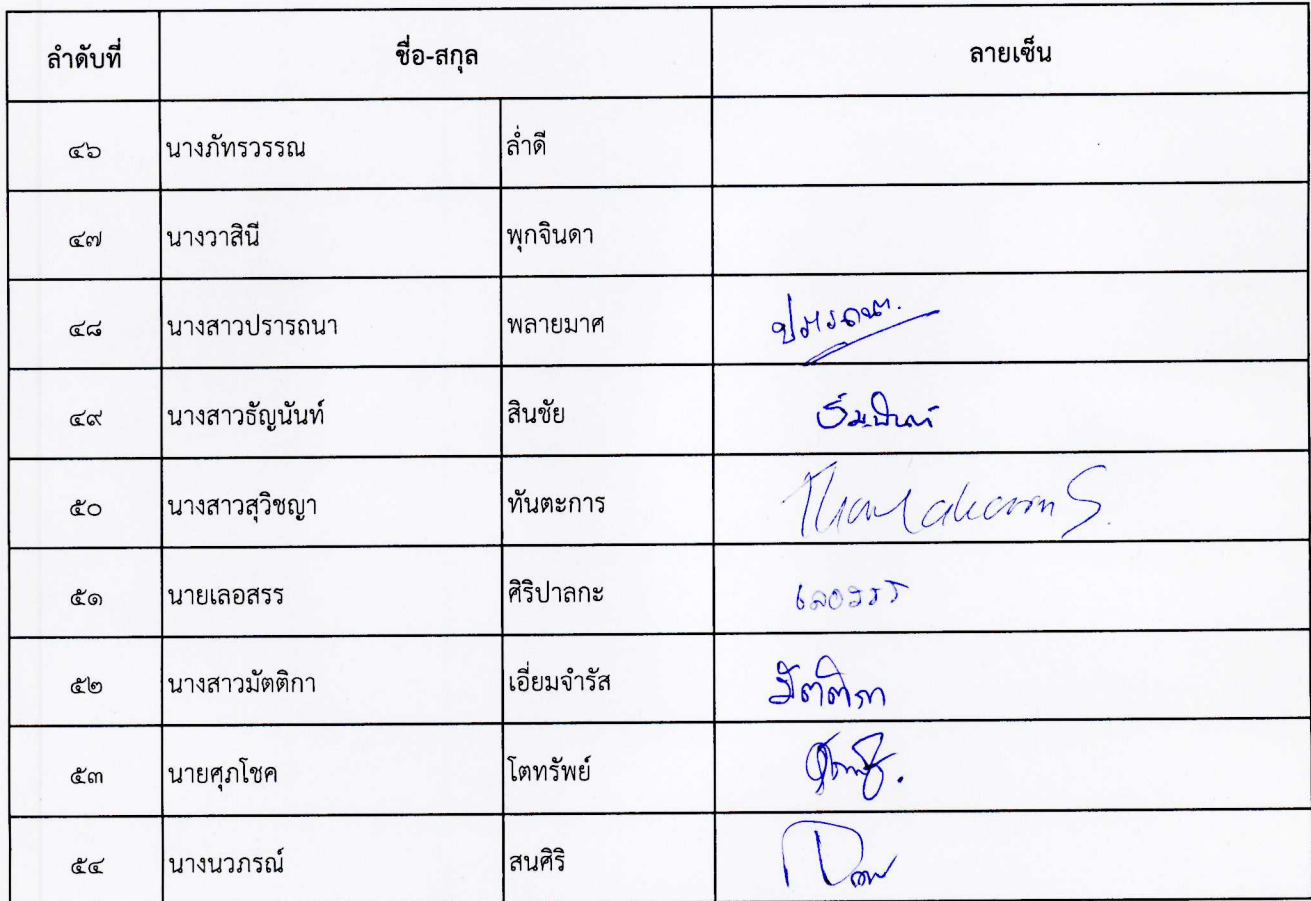 ลำดับที่ ชื่อ-สกุล ลายเซ็น
๔๖ นางภัทรวรรณ ล่ำดี
๔๗ นางวาสินี พุกจินดา
๔๘ นางสาวปรารถนา พลายมาศ ปรารถนา
๔๙ นางสาวธัญนันท์ สินชัย
๕๐ นางสาวสุวิชญา ทันตะการ
๕๑ นายเลอสรร ศิริปาลกะ เลอสรร
๕๒ นางสาวมัตติกา เอี่ยมจำรัส มัตติกา
๕๓ นายศุภโชค โตทรัพย์
๕๔ นางนวภรณ์ สนศิริ